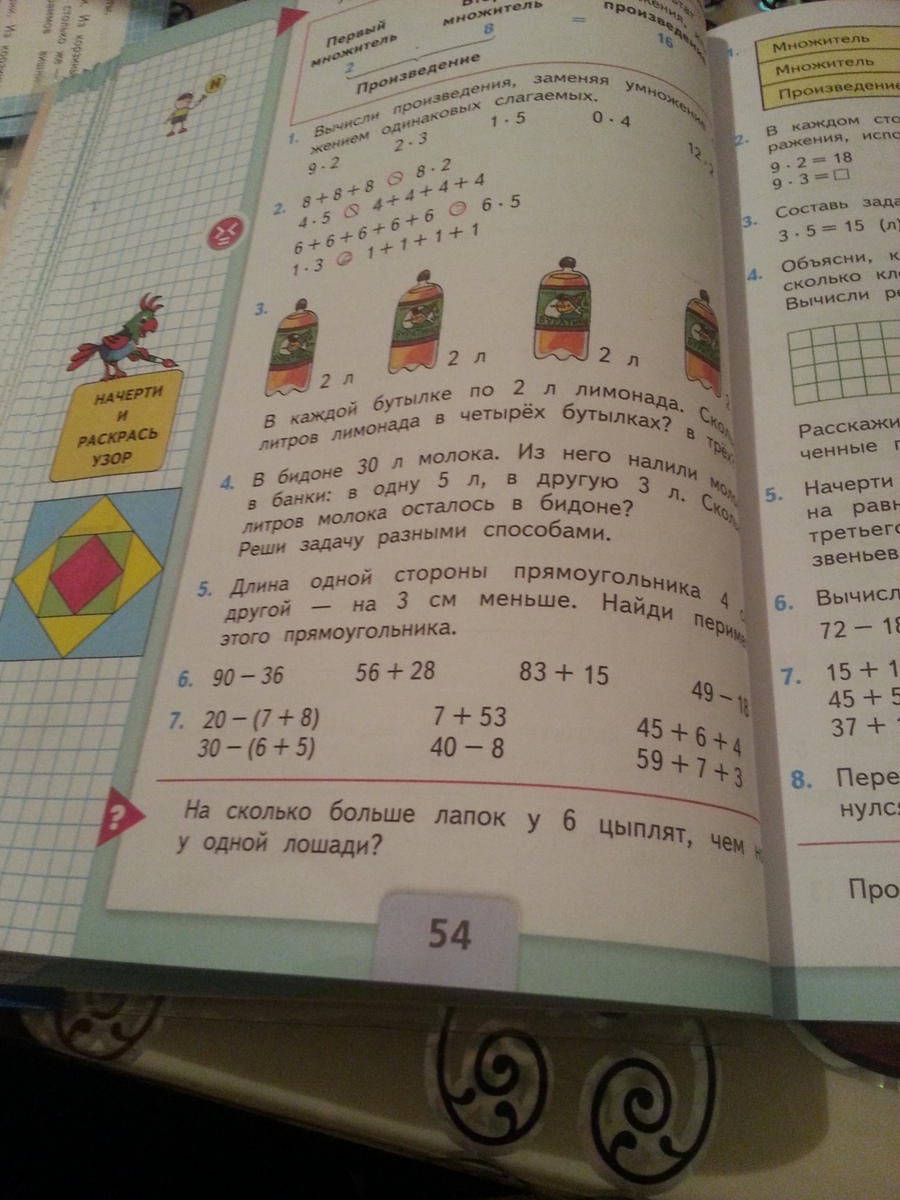 Первый
множитель
множитель
2 · 8 = 16
Произведение
1. Вычисли произведения, заменяя умножение
жением одинаковых слагаемых.
9 · 2 2 · 3 1 · 5 0 · 4
2. 8 + 8 + 8 8 · 2
4 · 5 4 + 4 + 4 + 4
6 + 6 + 6 + 6 + 6 6 · 5
1 · 3 1 + 1 + 1 + 1
3.
2 л 2 л 2 л
В каждой бутылке по 2 л лимонада.
литров лимонада в четырёх бутылках? в
4. В бидоне 30 л молока. Из него налили
в банки: в одну 5 л, в другую 3 л.
литров молока осталось в бидоне?
Реши задачу разными способами.
5. Длина одной стороны прямоугольника 4
другой — на 3 см меньше. Найди
этого прямоугольника.
6. 90 − 36 56 + 28 83 + 15 49 − 18
7. 20 − (7 + 8) 7 + 53 45 + 6 + 4
30 − (6 + 5) 40 − 8 59 + 7 + 3
? На сколько больше лапок у 6 цыплят, чем
у одной лошади?
54
НАЧЕРТИ
И
РАСКРАСЬ
УЗОР
1.
Множитель
Множитель
Произведение
2. В каждом
9 · 2 = 18
9 · 3 =
3. Составь
3 · 5 = 15 (л)
4. Объясни,
сколько
Вычисли
5. Начерти
на
третьего
звеньев
6.
72 − 18
7.
8.